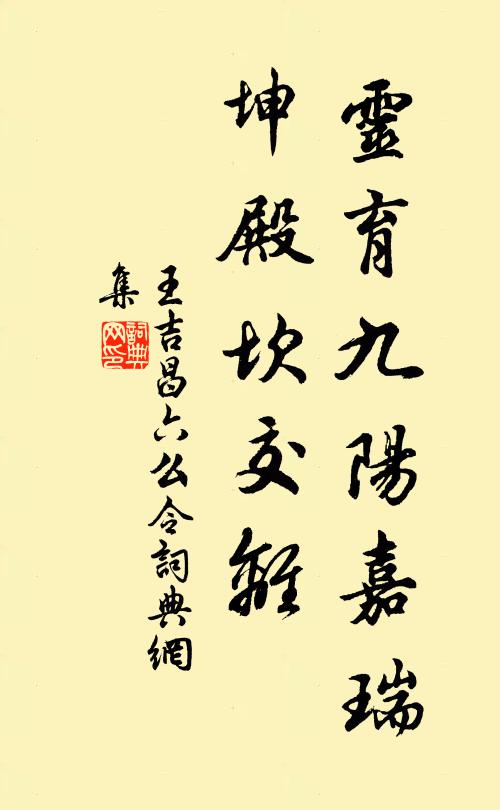 靈育九陽嘉瑞
坤殿坎交離
王吉昌六么令詞典網
集
詞典
网印